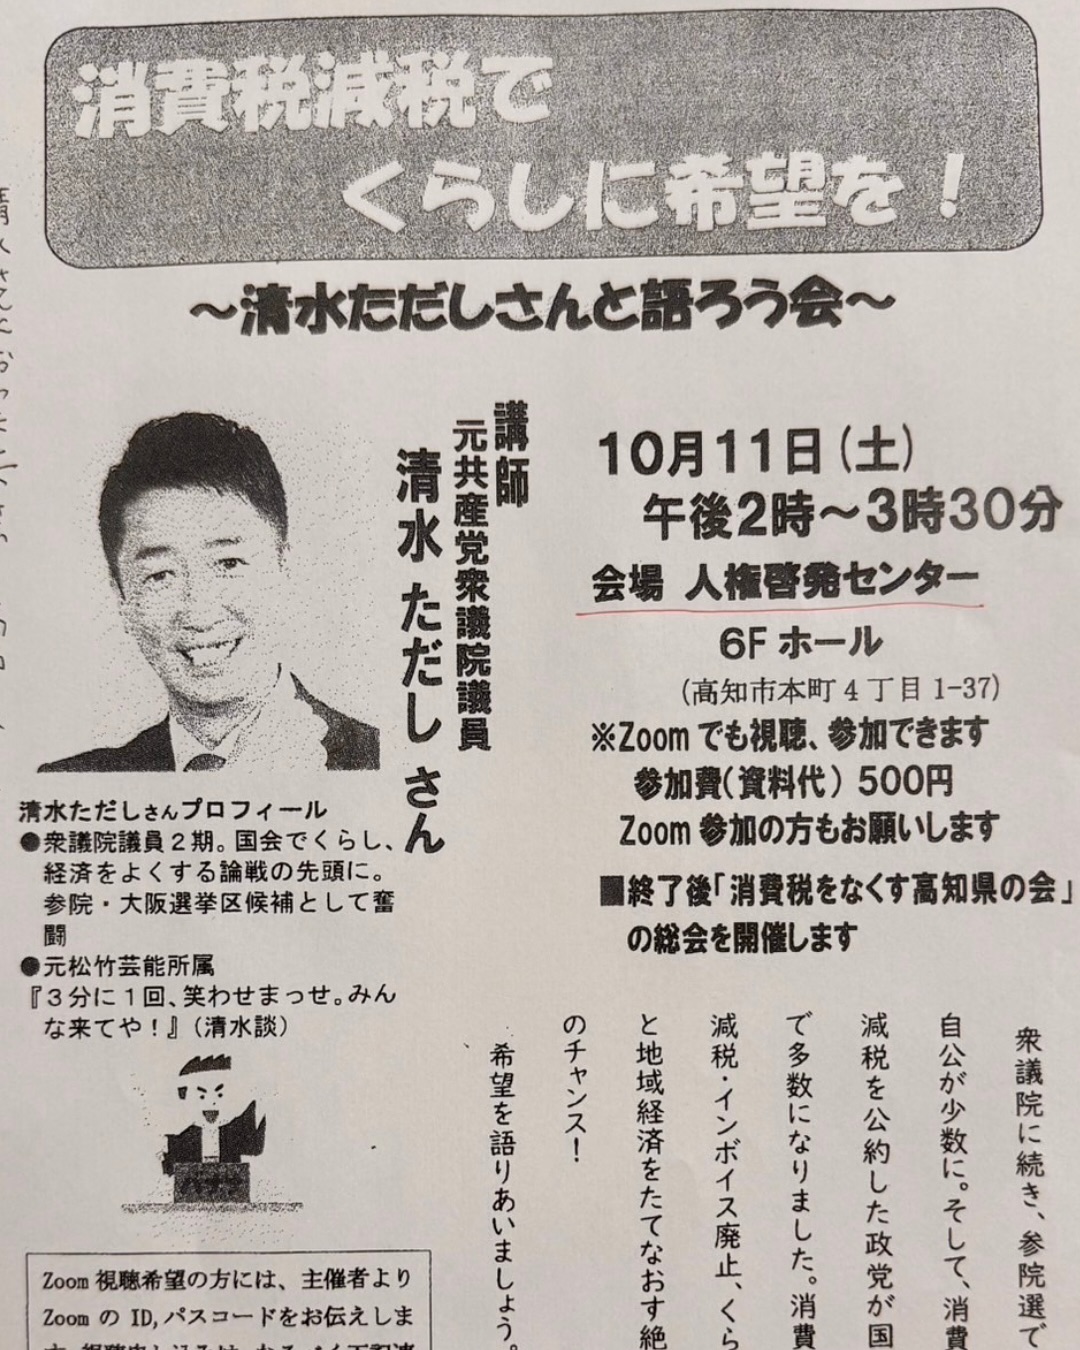 消費税減税で
くらしに希望を！
～清水ただしさんと語ろう会～
講師
元共産党衆議院議員
清水ただしさん
10月11日（土）
午後2時～3時30分
会場 人権啓発センター
6Fホール
（高知市本町4丁目1-37）
※Zoomでも視聴、参加できます
参加費（資料代）500円
Zoom参加の方もお願いします
■終了後「消費税をなくす高知県の会」
の総会を開催します
清水ただしさんプロフィール
●衆議院議員２期。国会でくらし、
経済をよくする論戦の先頭に。
参院・大阪選挙区候補として奮
闘
●元松竹芸能所属
『３分に１回、笑わせまっせ。みん
な来てや！』（清水談）
衆議院に続き、参院選で
自公が少数に。そして、消費
減税を公約した政党が国
で多数になりました。消費
減税・インボイス廃止、くら
と地域経済をたてなおす絶
のチャンス！
希望を語りあいましょう。
Zoom視聴希望の方には、主催者より
ZoomのID,パスコードをお伝えしま